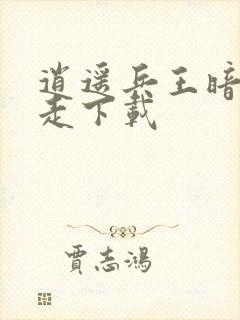 逍遥兵王暗
走下載
賈志鴻